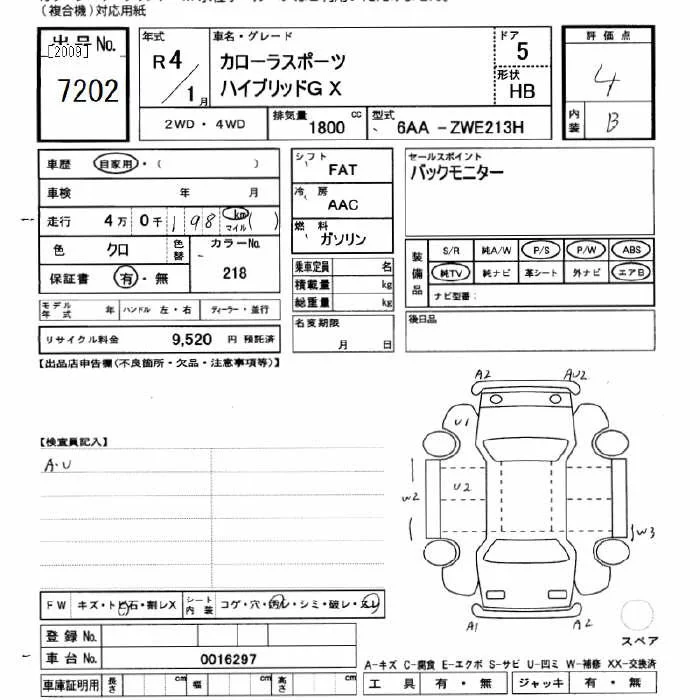 (複合機)対応用紙
出品No.
[2009]
7202
年式
R4/1月
車名・グレード
カローラスポーツ
ハイブリッドG X
ドア
5
形状
HB
評価点
4
内装
B
2WD・4WD
排気量 1800 cc
型式 6AA -ZWE213H
車歴 自家用・( )
車検 年 月
走行 4万0千198 km マイル( )
色 クロ 色替 カラーNo.
保証書 有・無 218
シフト
FAT
冷房
AAC
燃料
ガソリン
乗車定員 名
積載量 kg
総重量 kg
セールスポイント
バックモニター
装備品
S/R 純A/W P/S P/W ABS
純TV 純ナビ 革シート 外ナビ エアB
ナビ型番:
モデル年式 年 ハンドル 左・右 ディーラー・並行
名変期限
月 日
後日品
リサイクル料金 9,520 円 預託済
【出品店申告欄(不良箇所・欠品・注意事項等)】
A2 AU2
U1
【検査員記入】
A・U
U2
W2
W3
A1 A2
FW キズ・トビ石・割レX シート内装 コゲ・穴・汚レ・シミ・破レ・スレ
スペア
登録No.
車台No. 0016297
A-キズ C-腐食 E-エクボ S-サビ U-凹ミ W-補修 XX-交換済
車庫証明用 長さ cm 幅 cm 高さ cm
工具 有・無 ジャッキ 有・無